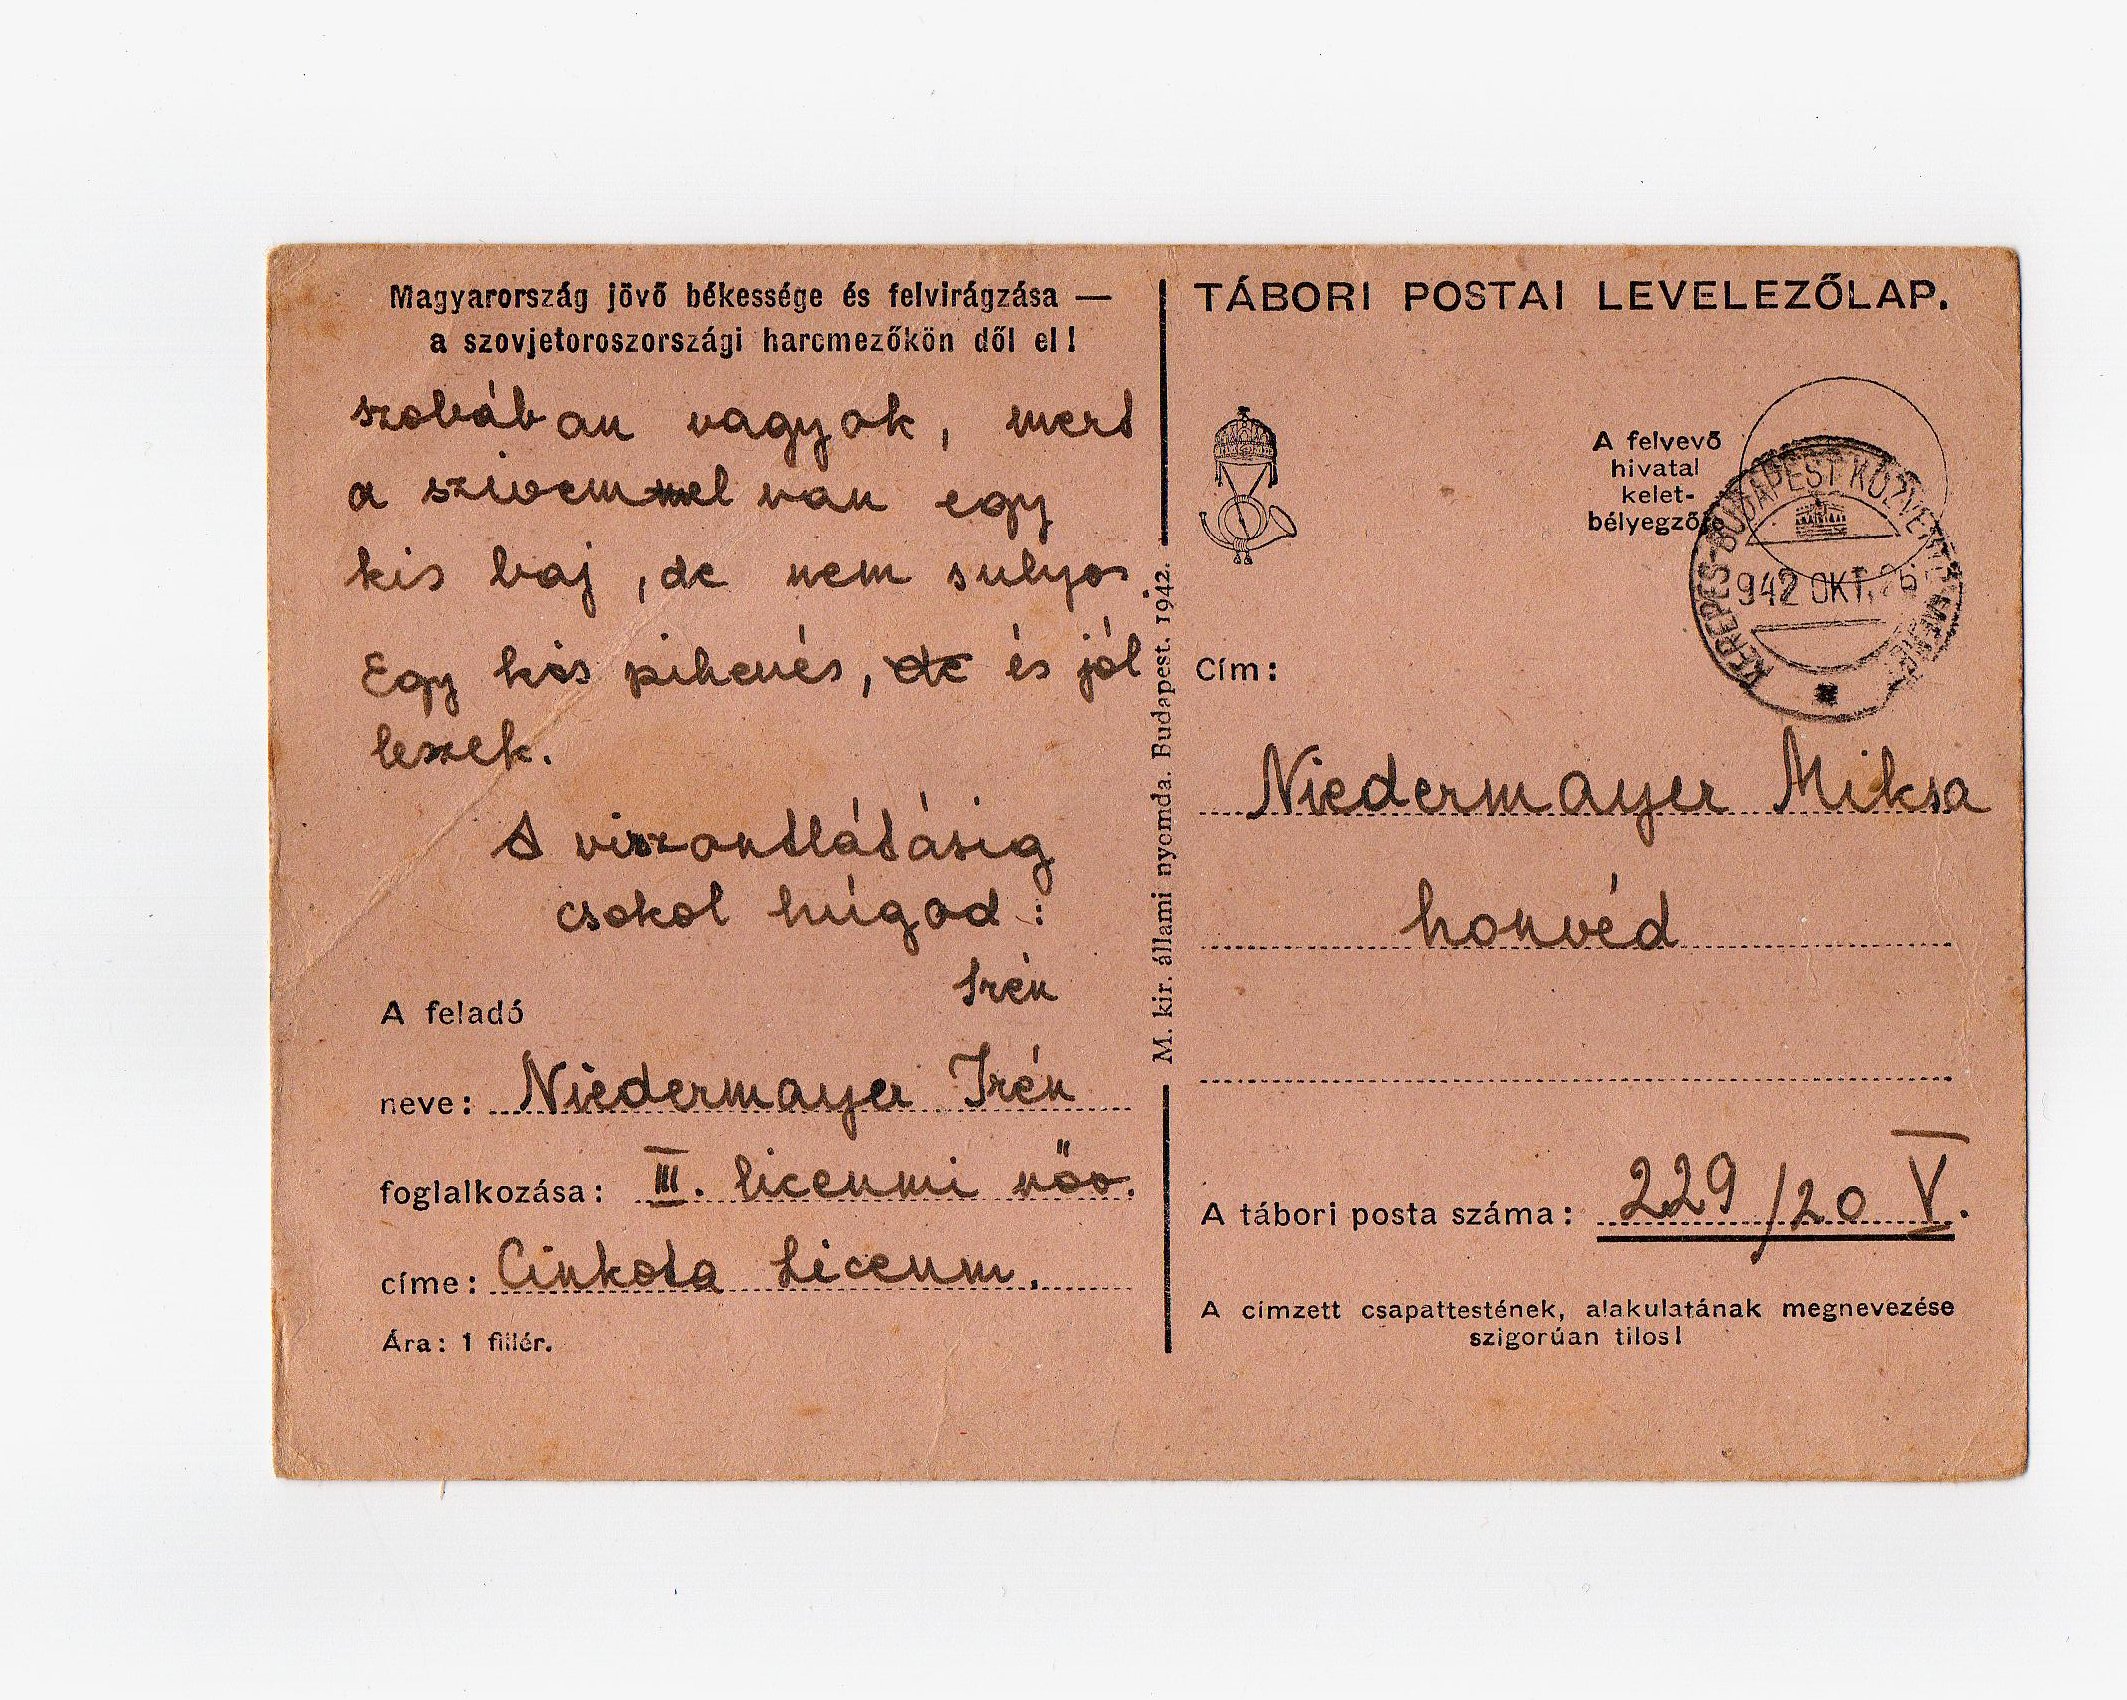 Magyarország jövő békessége és felvirágzása —
a szovjetoroszországi harcmezőkön dől el!
szobában vagyok, mert
a szivemmel van egy
kis baj, de nem sulyos.
Egy kis pihenés, de és jól
leszek.
A viszontlátásig
csokol húgod:
Irén
A feladó
neve: Niedermayer Irén
foglalkozása: III. liceumi növ.
címe: Cinkota Liceum.
Ára: 1 fillér.
M. kir. állami nyomda. Budapest. 1942.
TÁBORI POSTAI LEVELEZŐLAP.
A felvevő
hivatal
kelet-
bélyegzője
KEREPES-BUDAPEST KÖZVETÍTŐ
942 OKT. 26
Cím:
Niedermayer Miksa
honvéd
A tábori posta száma: 229/20 V.
A címzett csapattestének, alakulatának megnevezése
szigorúan tilos!